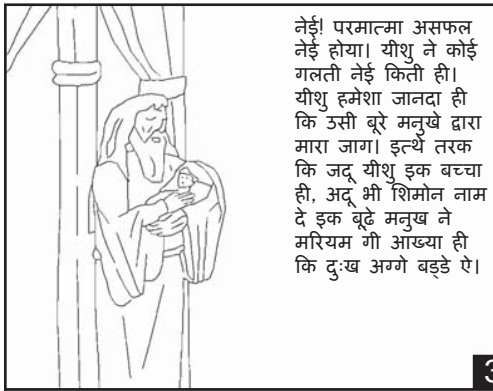 नेई! परमात्मा असफल
नेई होया। यीशु ने कोई
गलती नेई किती ही।
यीशु हमेशा जानदा ही
कि उसी बूरे मनुखे द्वारा
मारा जाग। इत्थे तरक
कि जदू यीशु इक बच्चा
ही, अदू भी शिमोन नाम
दे इक बूढे मनुख ने
मरियम गी आख्या ही
कि दुःख अग्गे बड्डे ऐ।
3